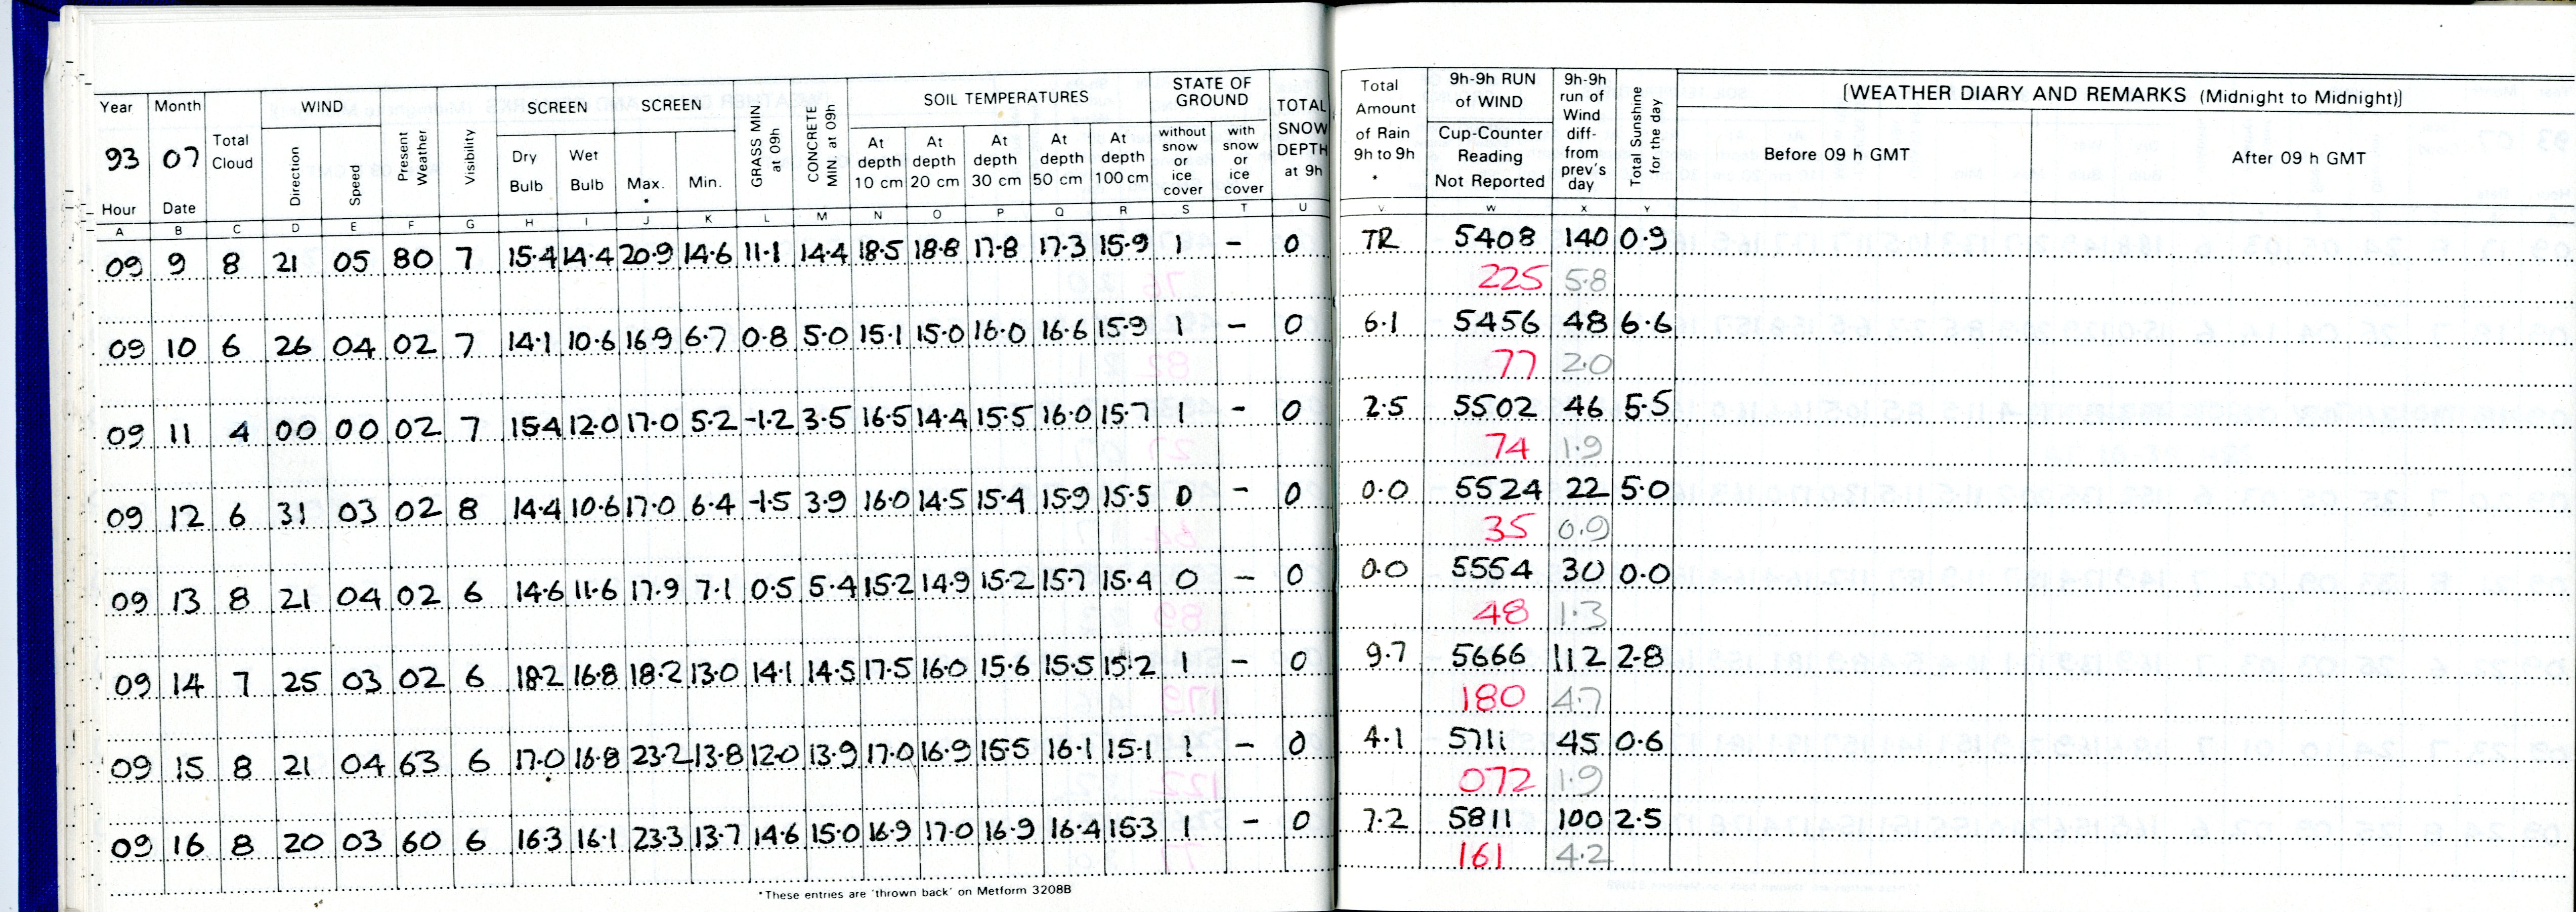 Year Month Total Cloud WIND Present Weather Visibility SCREEN SCREEN GRASS MIN at 09h CONCRETE MIN. at 09h SOIL TEMPERATURES STATE OF GROUND TOTAL SNOW DEPTH at 9h Total Amount of Rain 9h to 9h * 9h-9h RUN of WIND 9h-9h run of Wind diff- from prev's day Total Sunshine for the day (WEATHER DIARY AND REMARKS (Midnight to Midnight))
93 07 Direction Speed Dry Bulb Wet Bulb Max. * Min. At depth 10 cm At depth 20 cm At depth 30 cm At depth 50 cm At depth 100 cm without snow or ice cover with snow or ice cover Cup-Counter Reading Not Reported Before 09 h GMT After 09 h GMT
Hour Date
A B C D E F G H I J K L M N O P Q R S T U V W X Y
09 9 8 21 05 80 7 15.4 14.4 20.9 14.6 11.1 14.4 18.5 18.8 17.8 17.3 15.9 1 – 0 TR 5408 140 0.9
225 5.8
09 10 6 26 04 02 7 14.1 10.6 16.9 6.7 0.8 5.0 15.1 15.0 16.0 16.6 15.9 1 – 0 6.1 5456 48 6.6
77 2.0
09 11 4 00 00 02 7 15.4 12.0 17.0 5.2 -1.2 3.5 16.5 14.4 15.5 16.0 15.7 1 – 0 2.5 5502 46 5.5
74 1.9
09 12 6 31 03 02 8 14.4 10.6 17.0 6.4 -1.5 3.9 16.0 14.5 15.4 15.9 15.5 0 – 0 0.0 5524 22 5.0
35 0.9
09 13 8 21 04 02 6 14.6 11.6 17.9 7.1 0.5 5.4 15.2 14.9 15.2 15.7 15.4 0 – 0 0.0 5554 30 0.0
48 1.3
09 14 7 25 03 02 6 18.2 16.8 18.2 13.0 14.1 14.5 17.5 16.0 15.6 15.5 15.2 1 – 0 9.7 5666 112 2.8
180 4.7
09 15 8 21 04 63 6 17.0 16.8 23.2 13.8 12.0 13.9 17.0 16.9 15.5 16.1 15.1 1 – 0 4.1 5711 45 0.6
072 1.9
09 16 8 20 03 60 6 16.3 16.1 23.3 13.7 14.6 15.0 16.9 17.0 16.9 16.4 15.3 1 – 0 7.2 5811 100 2.5
161 4.2
*These entries are 'thrown back' on Metform 3208B